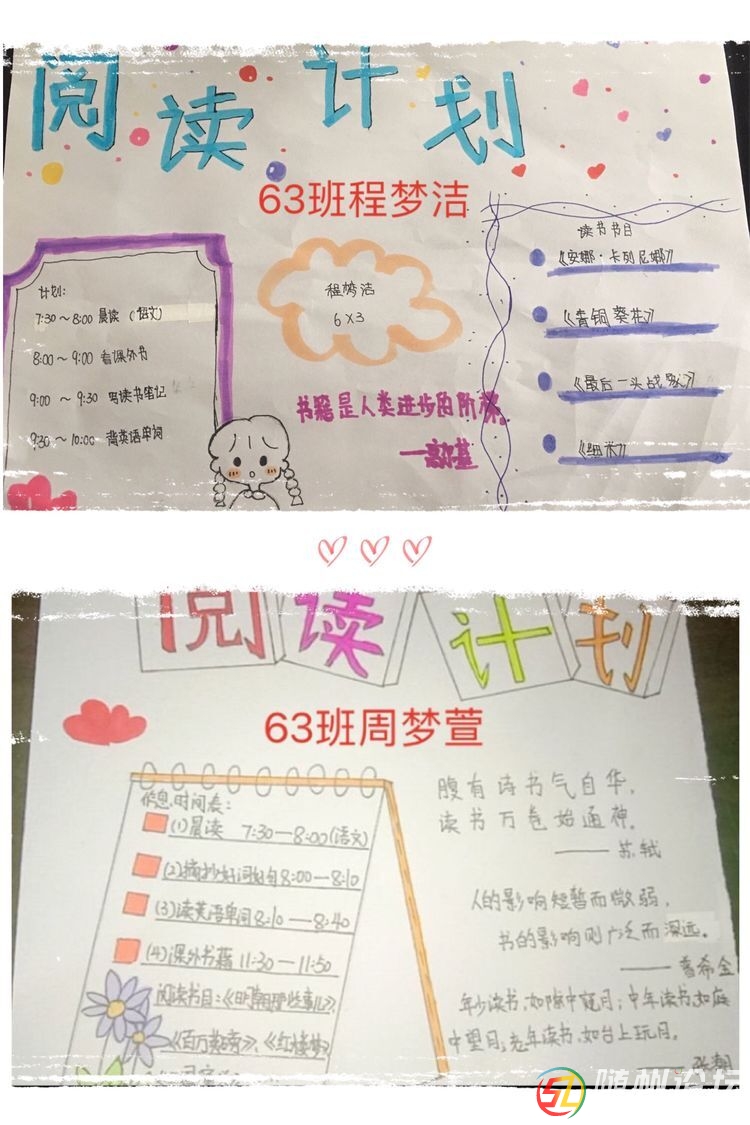 阅读计划
63班程梦洁
计划:
7:30～8:00 晨读（语文）
8:00～9:00 看课外书
9:00～9:30 写读书笔记
9:30～10:00 背英语单词
程梦洁
6×3
书籍是人类进步的阶梯。
—高尔基
读书书目
《安娜·卡列尼娜》
《青铜葵花》
《最后一头战象》
《细米》
阅读计划
63班周梦萱
作息时间表:
(1)晨读 7:30—8:00(语文)
(2)摘抄好词好句8:00—8:10
(3)读英语单词8:10—8:40
(4)课外书籍 11:30—11:50
阅读书目:《明朝那些事儿》、
《百万英镑》、《红楼梦》
腹有诗书气自华,
读书万卷始通神。
——苏轼
人的影响短暂而微弱,
书的影响则广泛而深远。
——普希金
年少读书,如隙中窥月;中年读书,如庭
中望月;老年读书,如台上玩月。
——张潮
随州论坛